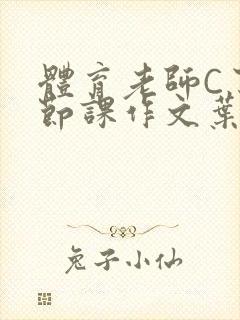 體育老師C
節課作文葉
兔子小仙